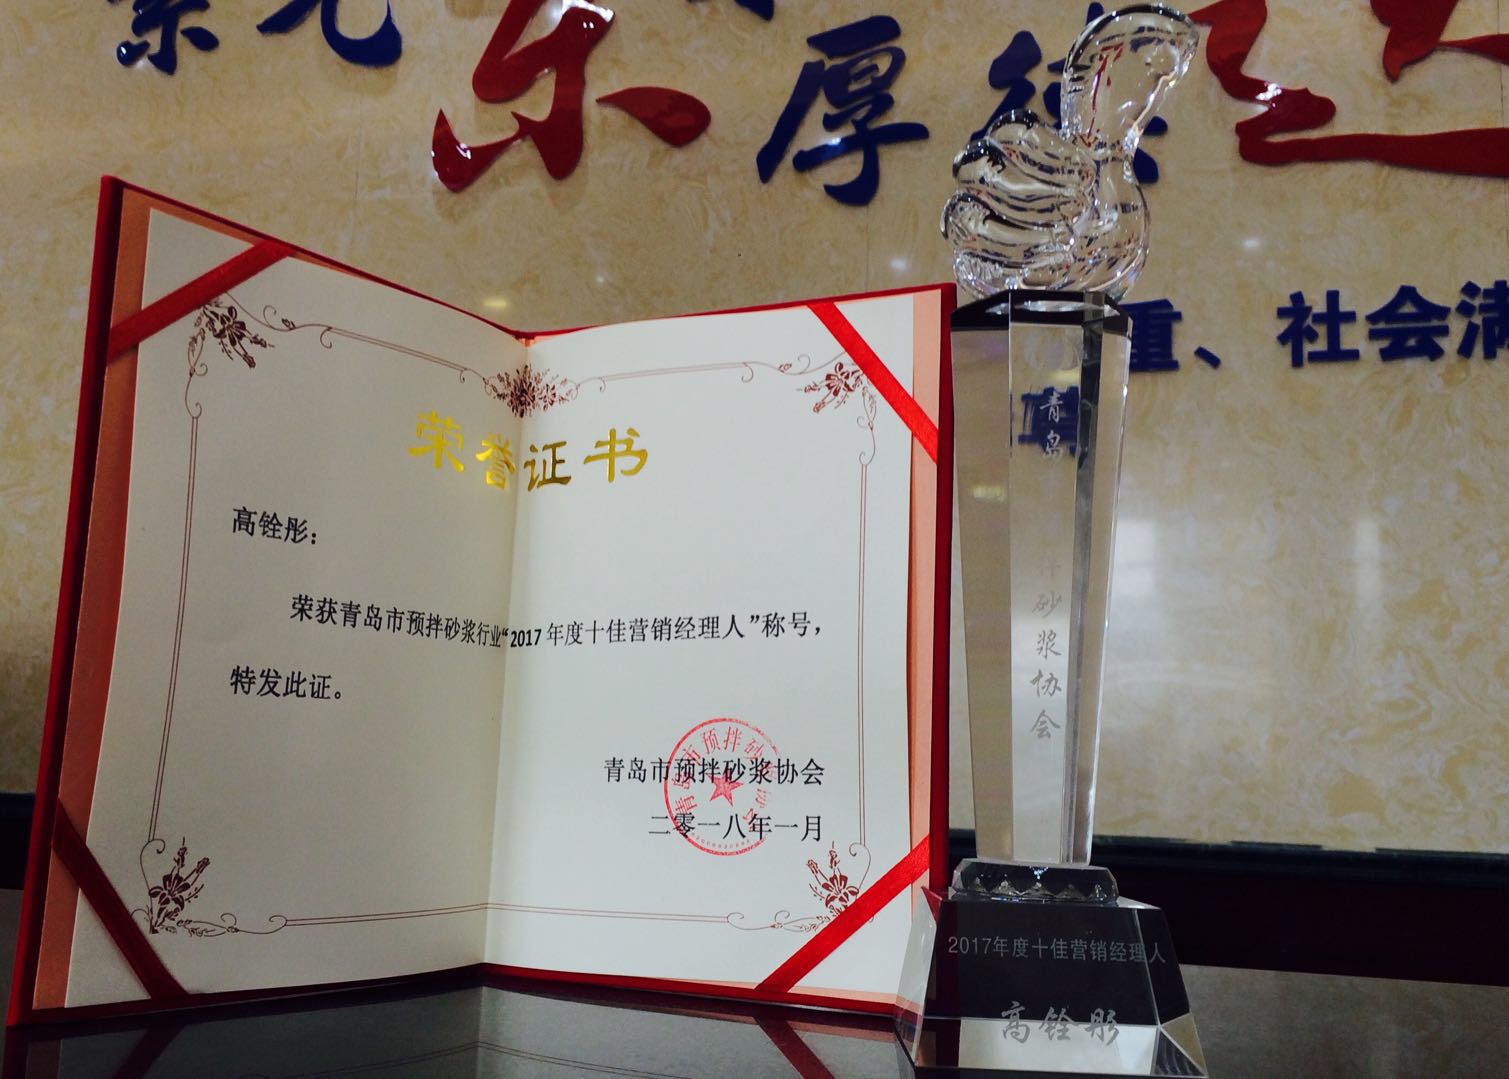 东
厚德
重、社会满
荣誉证书
高铨彤：
荣获青岛市预拌砂浆行业“2017年度十佳营销经理人”称号，
特发此证。
青岛市预拌砂浆协会
二零一八年一月
青岛市预拌砂
青岛
拌砂浆协会
2017年度十佳营销经理人
高铨彤